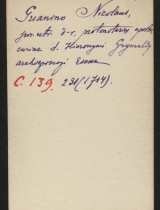 Gusanino Nicolaus,
jur. utr. d-r, protonotarius apost.
curiae d. Hieronymi Grymaldi
archiepiscopi
C. 139. 231 (1714).